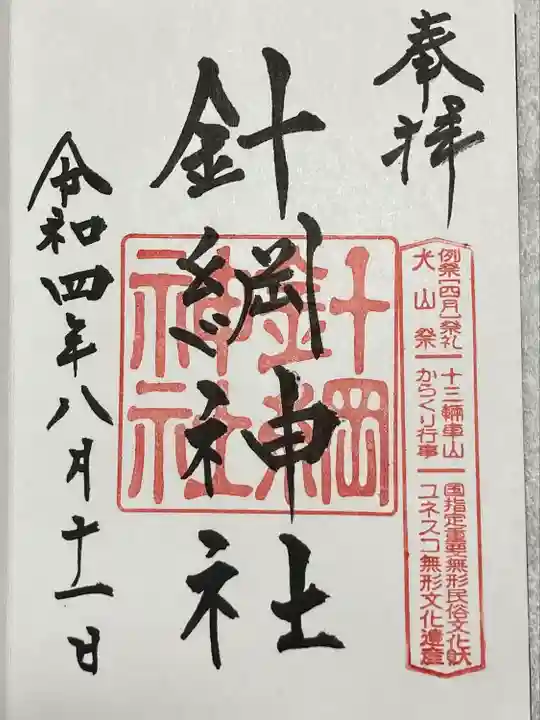 奉拝
例祭[四月]祭礼
犬山祭
十三輌車山
からくり行事
国指定重要無形民俗文化財
ユネスコ無形文化遺産
針綱神社
針綱
神社
令和四年八月十一日